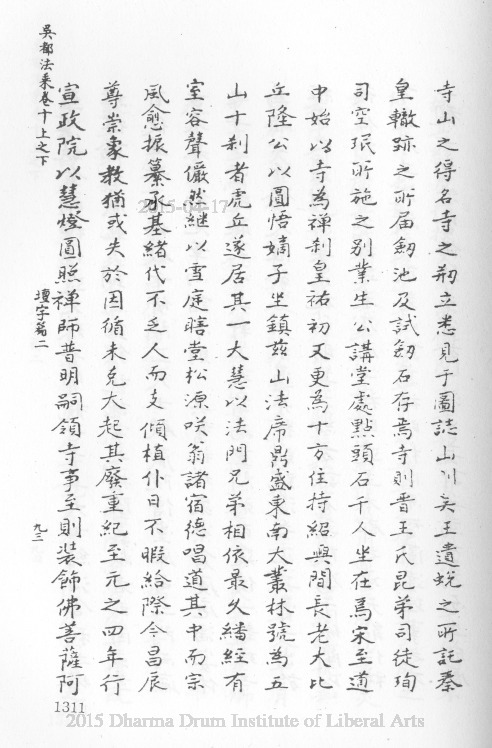 寺山之得名寺之刱立悉見于圖誌山則吳王遺蛻之所託秦
皇轍跡之所届劒池及試劒石存焉寺則晋王氏昆弟司徒珣
司空珉所施之别業生公講堂處點頭石千人坐在焉宋至道
中始以寺為禅刹皇祐初又更為十方住持紹興間長老大比
丘隆公以圓悟嫡子坐鎮兹山法席鼎盛東南大叢林號為五
山十刹者虎丘遂居其一大慧以法門兄弟相依最久繙經有
室容聲儼然継以雪庭瞎堂松源咲翁諸宿德唱道其中而宗
風愈振纂承基緒代不乏人而支傾植仆日不暇給際今昌辰
尊崇象教猶或失於因循未克大起其廢重紀至元之四年行
宣政院以慧燈圓照禅師普明嗣領寺事至則裝飾佛菩薩阿
吳都法乗卷十上之下
壇字第二
九三
1311
2015-04-17
2015 Dharma Drum Institute of Liberal Arts